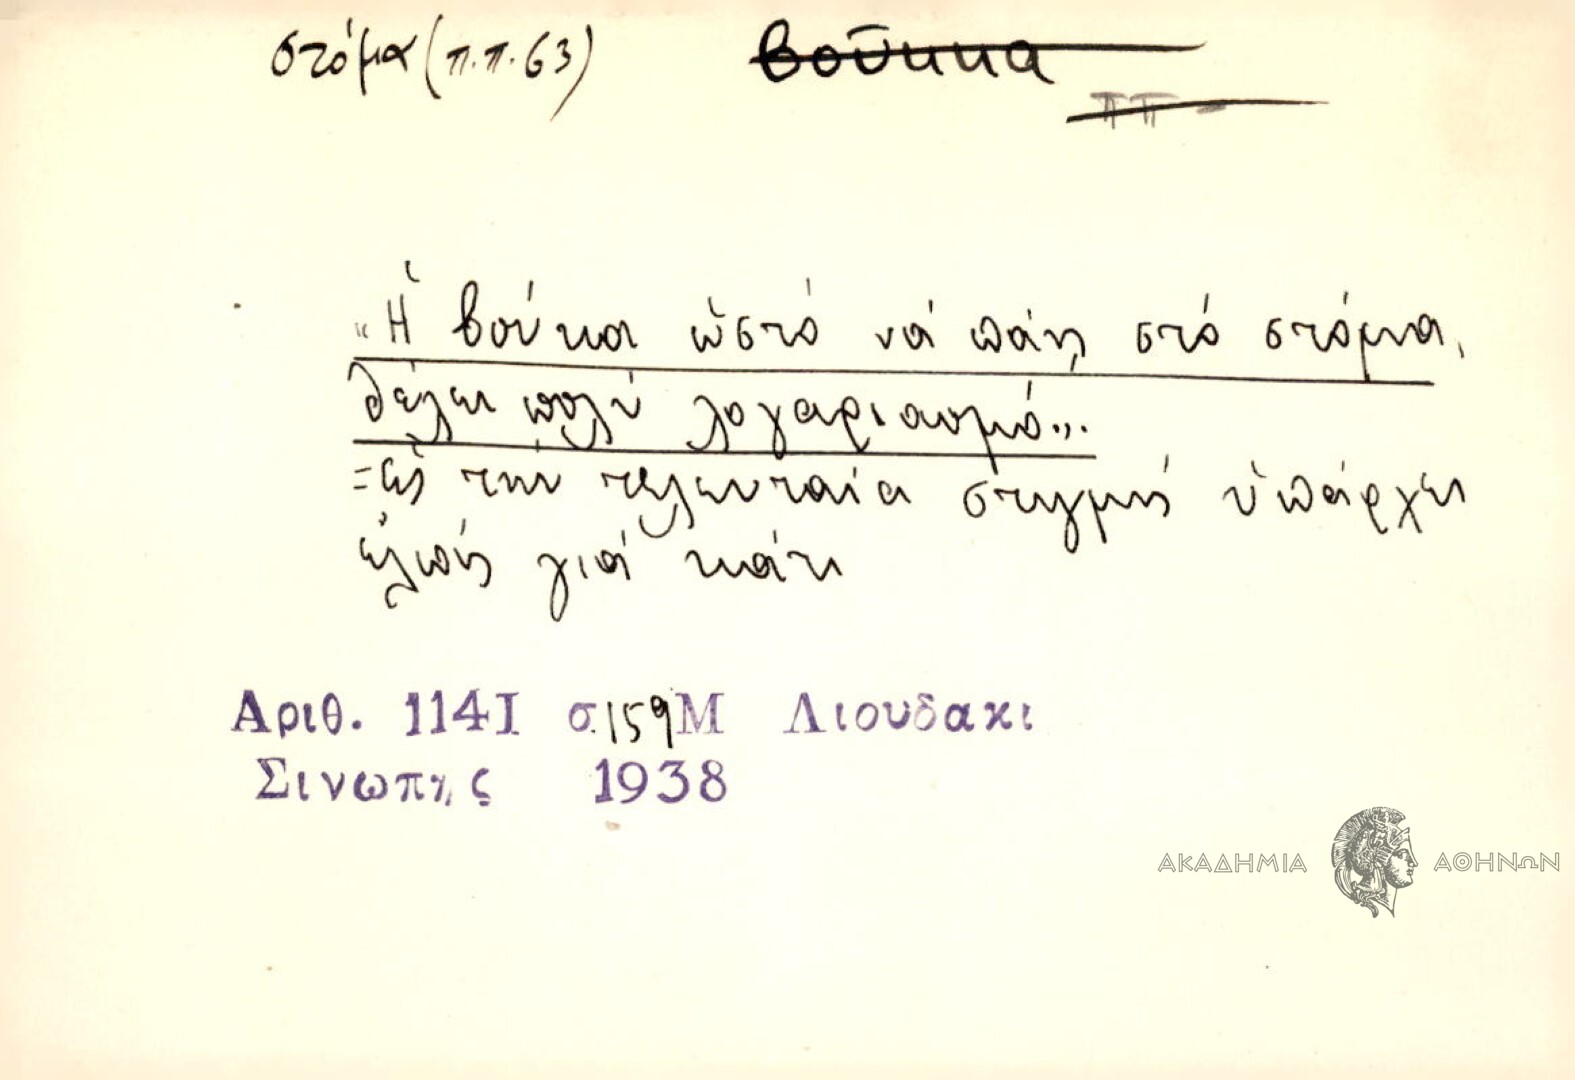 στόμα (π.π. 63) βούκκα
ππ
"Ἡ βούκα ὡστό νά πάῃ στό στόμα,
θέλει πολύ λογαριασμό...
=εἰς τήν τελευταία στιγμή ὑπάρχει
ἐλπίς γιά κάτι
Αριθ. 1141 σ.159 Μ Λιουδακι
Σινωπης 1938
ΑΚΑΔΗΜΙΑ ΑΘΗΝΩΝ